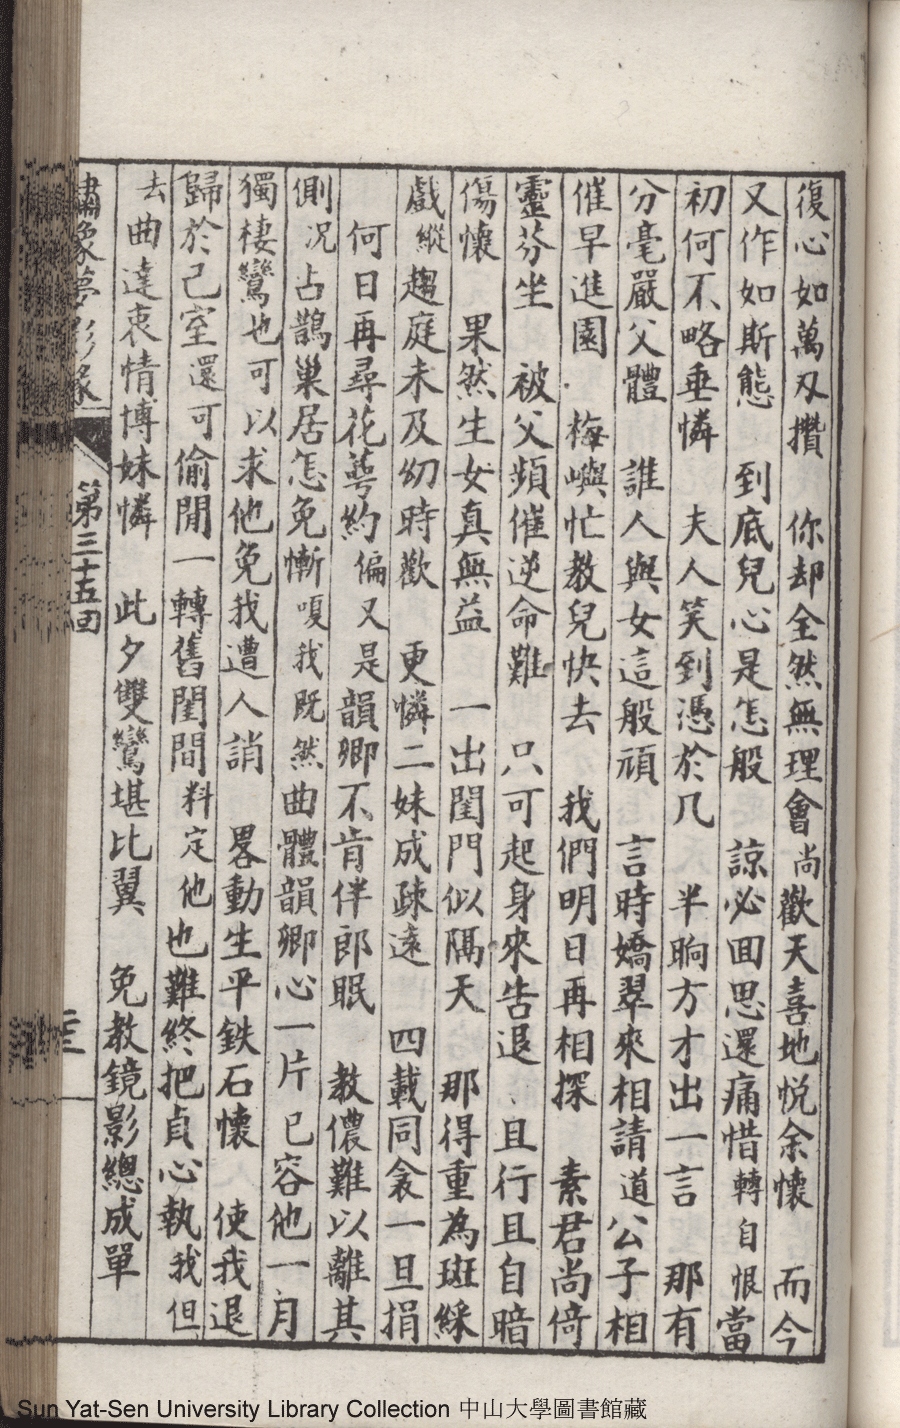 復心如萬刄攢　你却全然無理會尚歡天喜地悅余懷　而今
又作如斯態　到底兒心是怎般　諒必回思還痛惜轉自恨當
初何不略垂憐　夫人笑到憑於几　半晌方才出一言　那有
分毫嚴父體　誰人與女這般頑　言時嬌翠來相請道公子相
催早進園　梅嶼忙教兒快去　我們明日再相探　素君尚倚
靈芬坐　被父頻催逆命難　只可起身來告退　且行且自暗
傷懷　果然生女真無益　一出閨門似隔天　那得重為斑綵
戲縱趨庭未及幼時歡　更憐二妹成疎遠　四載同衾一旦捐
何日再尋花萼約偏又是韻卿不肯伴郎眠　教儂難以離其
側況占鵲巢居怎免慚嗄我既然曲體韻卿心一片已容他一月
獨棲鸞也可以求他免我遭人誚　畧動生平鉄石懷　使我退
歸於己室還可偷閒一轉舊閨間料定他也難終把貞心執我但
去曲達衷情博妹憐　此夕雙鸞堪比翼　免教鏡影總成單
繡像夢影緣　第三十五回
Sun Yat-Sen University Library Collection 中山大學圖書館藏